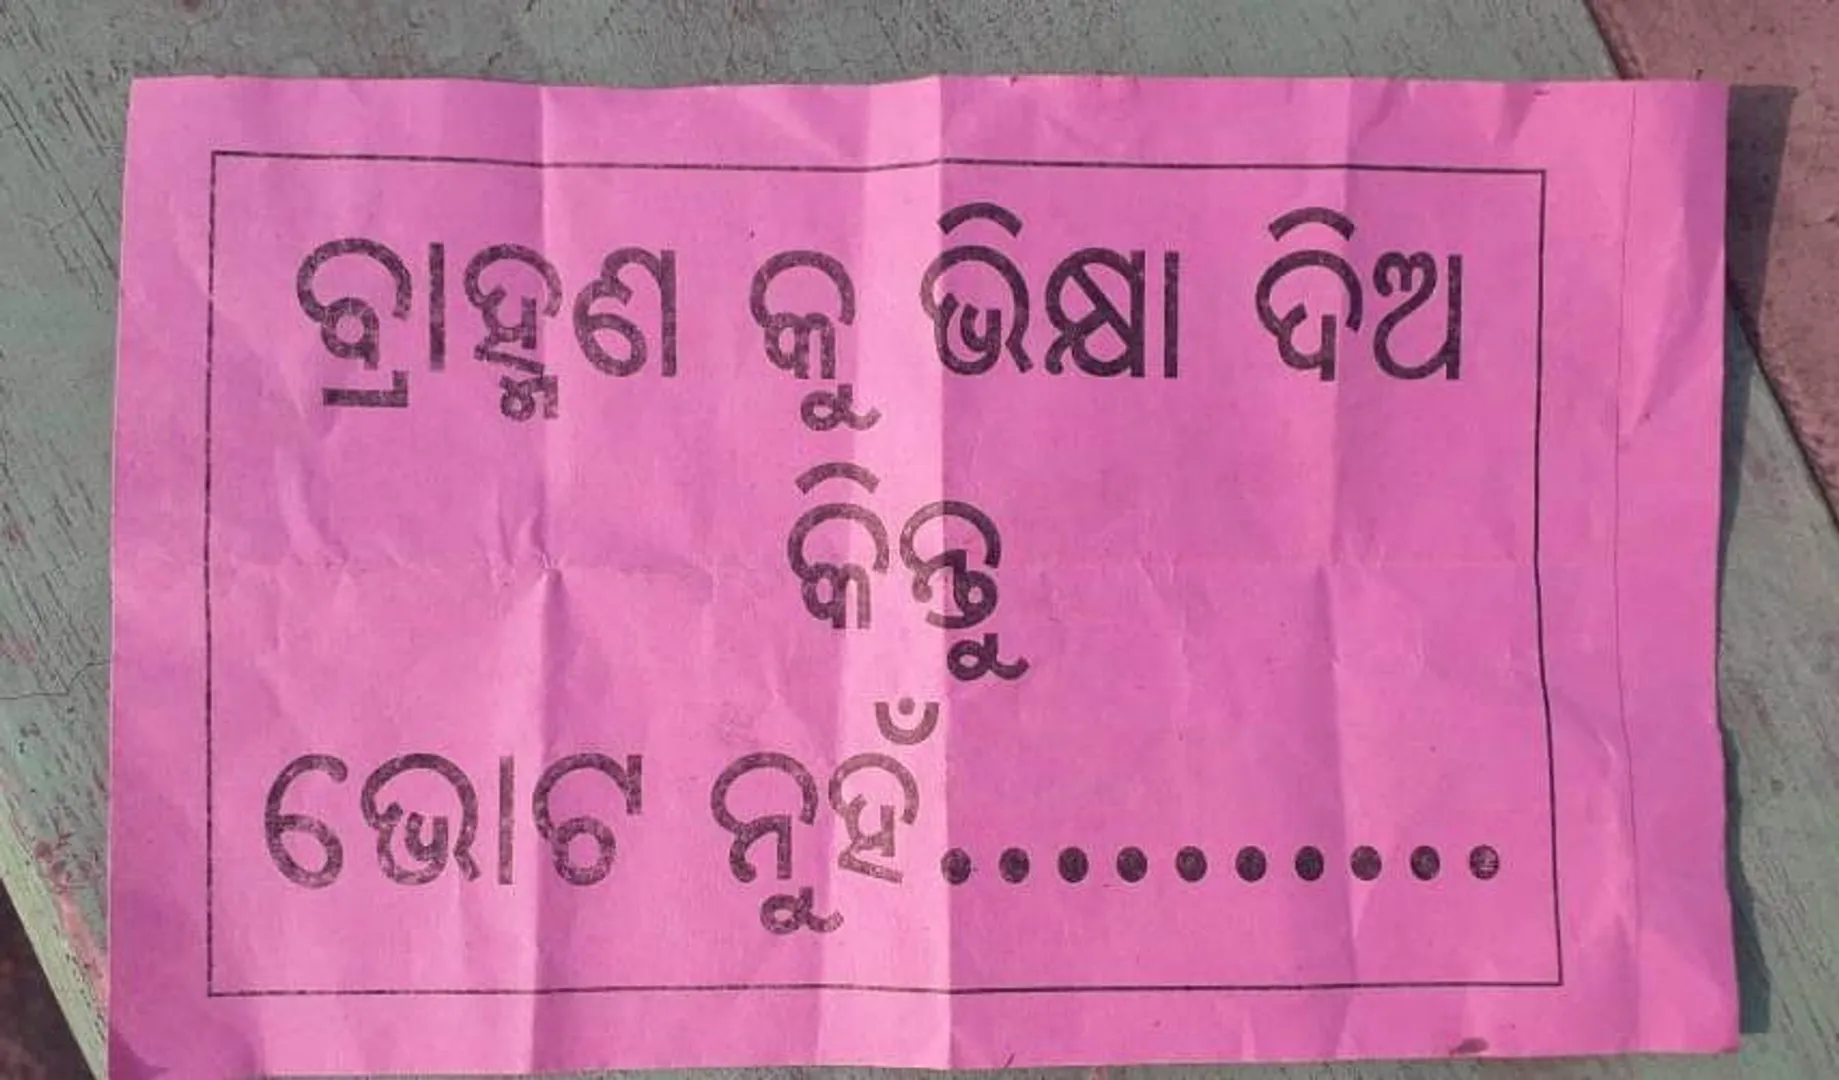 ବ୍ରାହ୍ମଣ କୁ ଭିକ୍ଷା ଦିଅ
କିନ୍ତୁ
ଭୋଟ ନୁହଁ..........